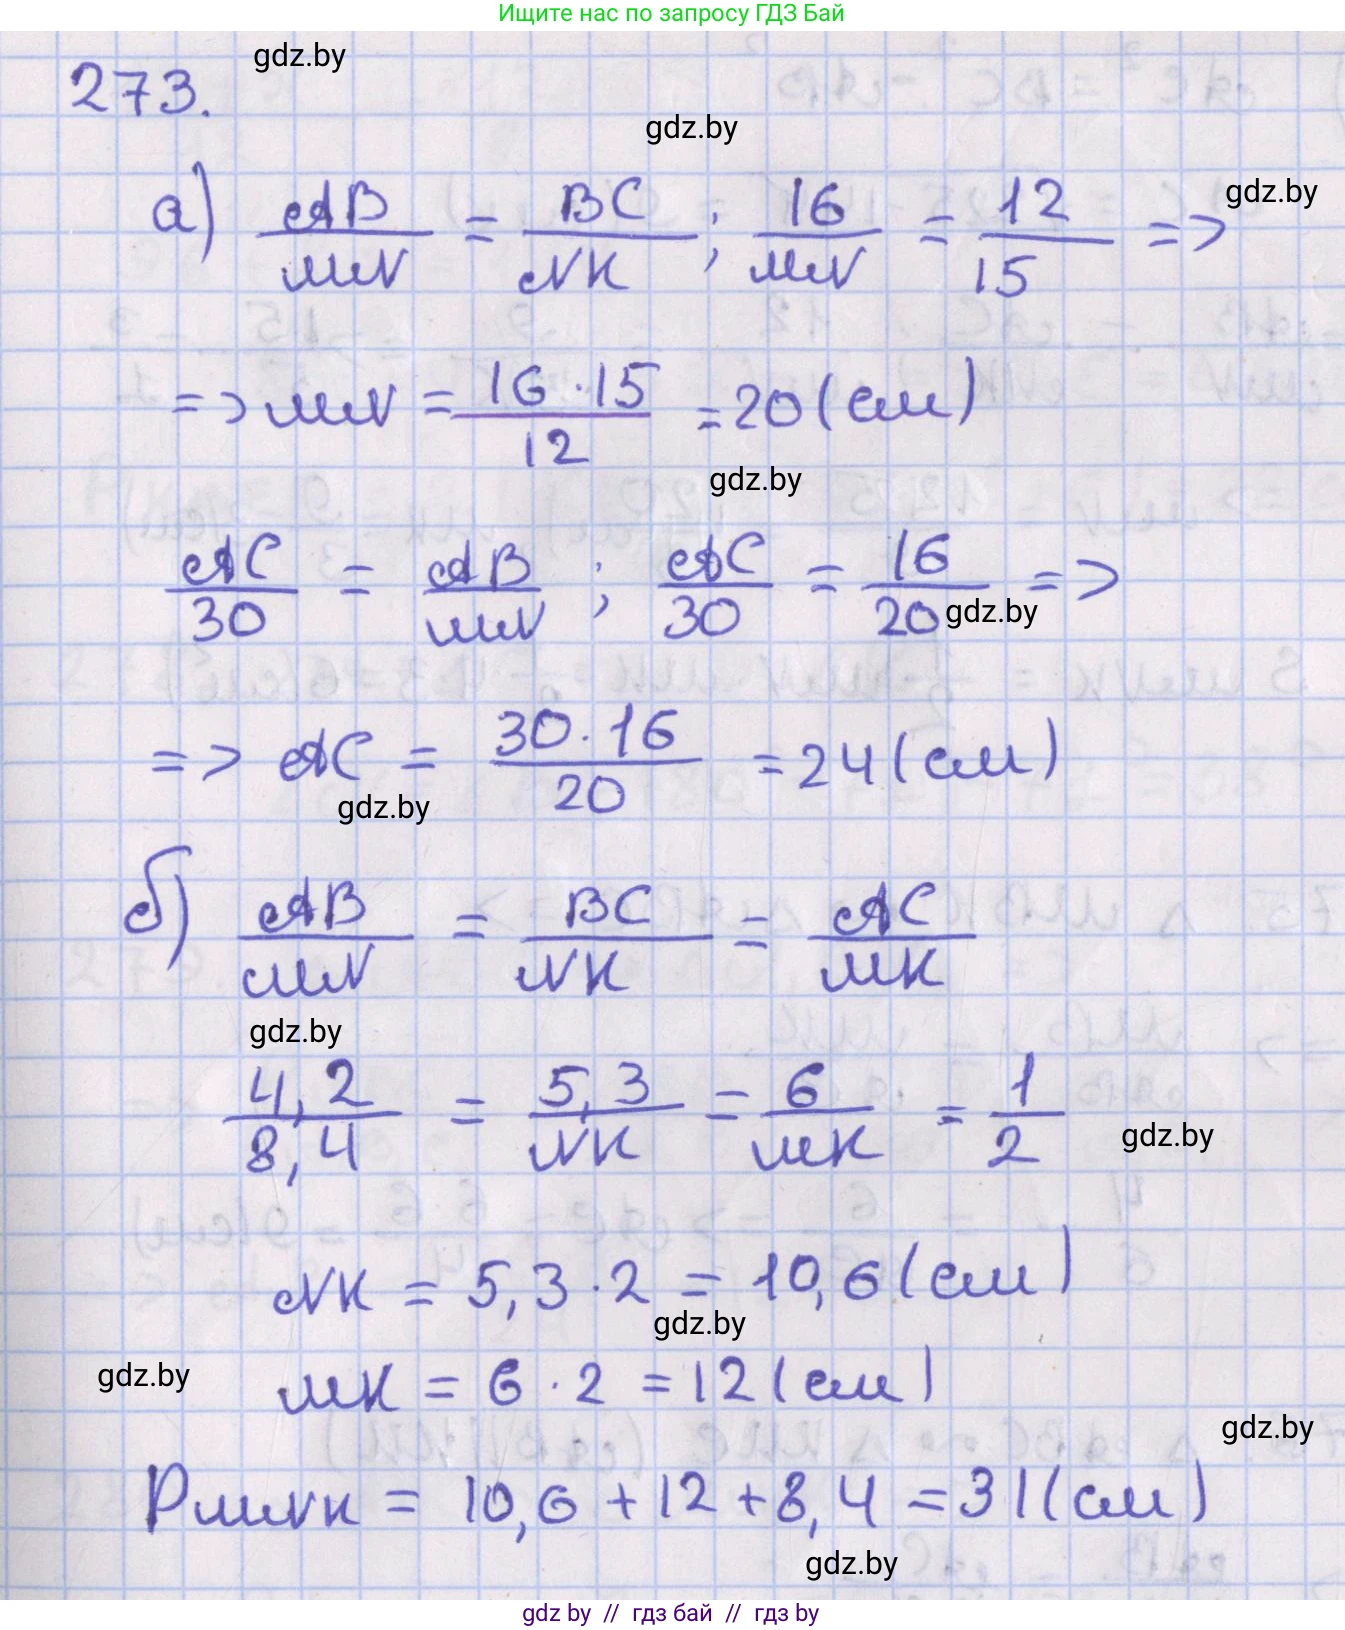 Ищите нас по запросу ГДЗ Бай
gdz.by
273.
gdz.by
gdz.by
а) AB/MN = BC/NK ; 16/MN = 12/15 =>
=> MN = 16·15/12 = 20 (см)
gdz.by
AC/30 = AB/MN ; AC/30 = 16/20 =>
gdz.by
=> AC = 30·16/20 = 24 (см)
gdz.by
б) AB/MN = BC/NK = AC/MK
gdz.by
4,2/8,4 = 5,3/NK = 6/MK = 1/2
gdz.by
NK = 5,3·2 = 10,6 (см)
gdz.by
MK = 6·2 = 12 (см)
gdz.by
gdz.by
PMNK = 10,6 + 12 + 8,4 = 31 (см)
gdz.by
gdz by // гдз бай // гдз by